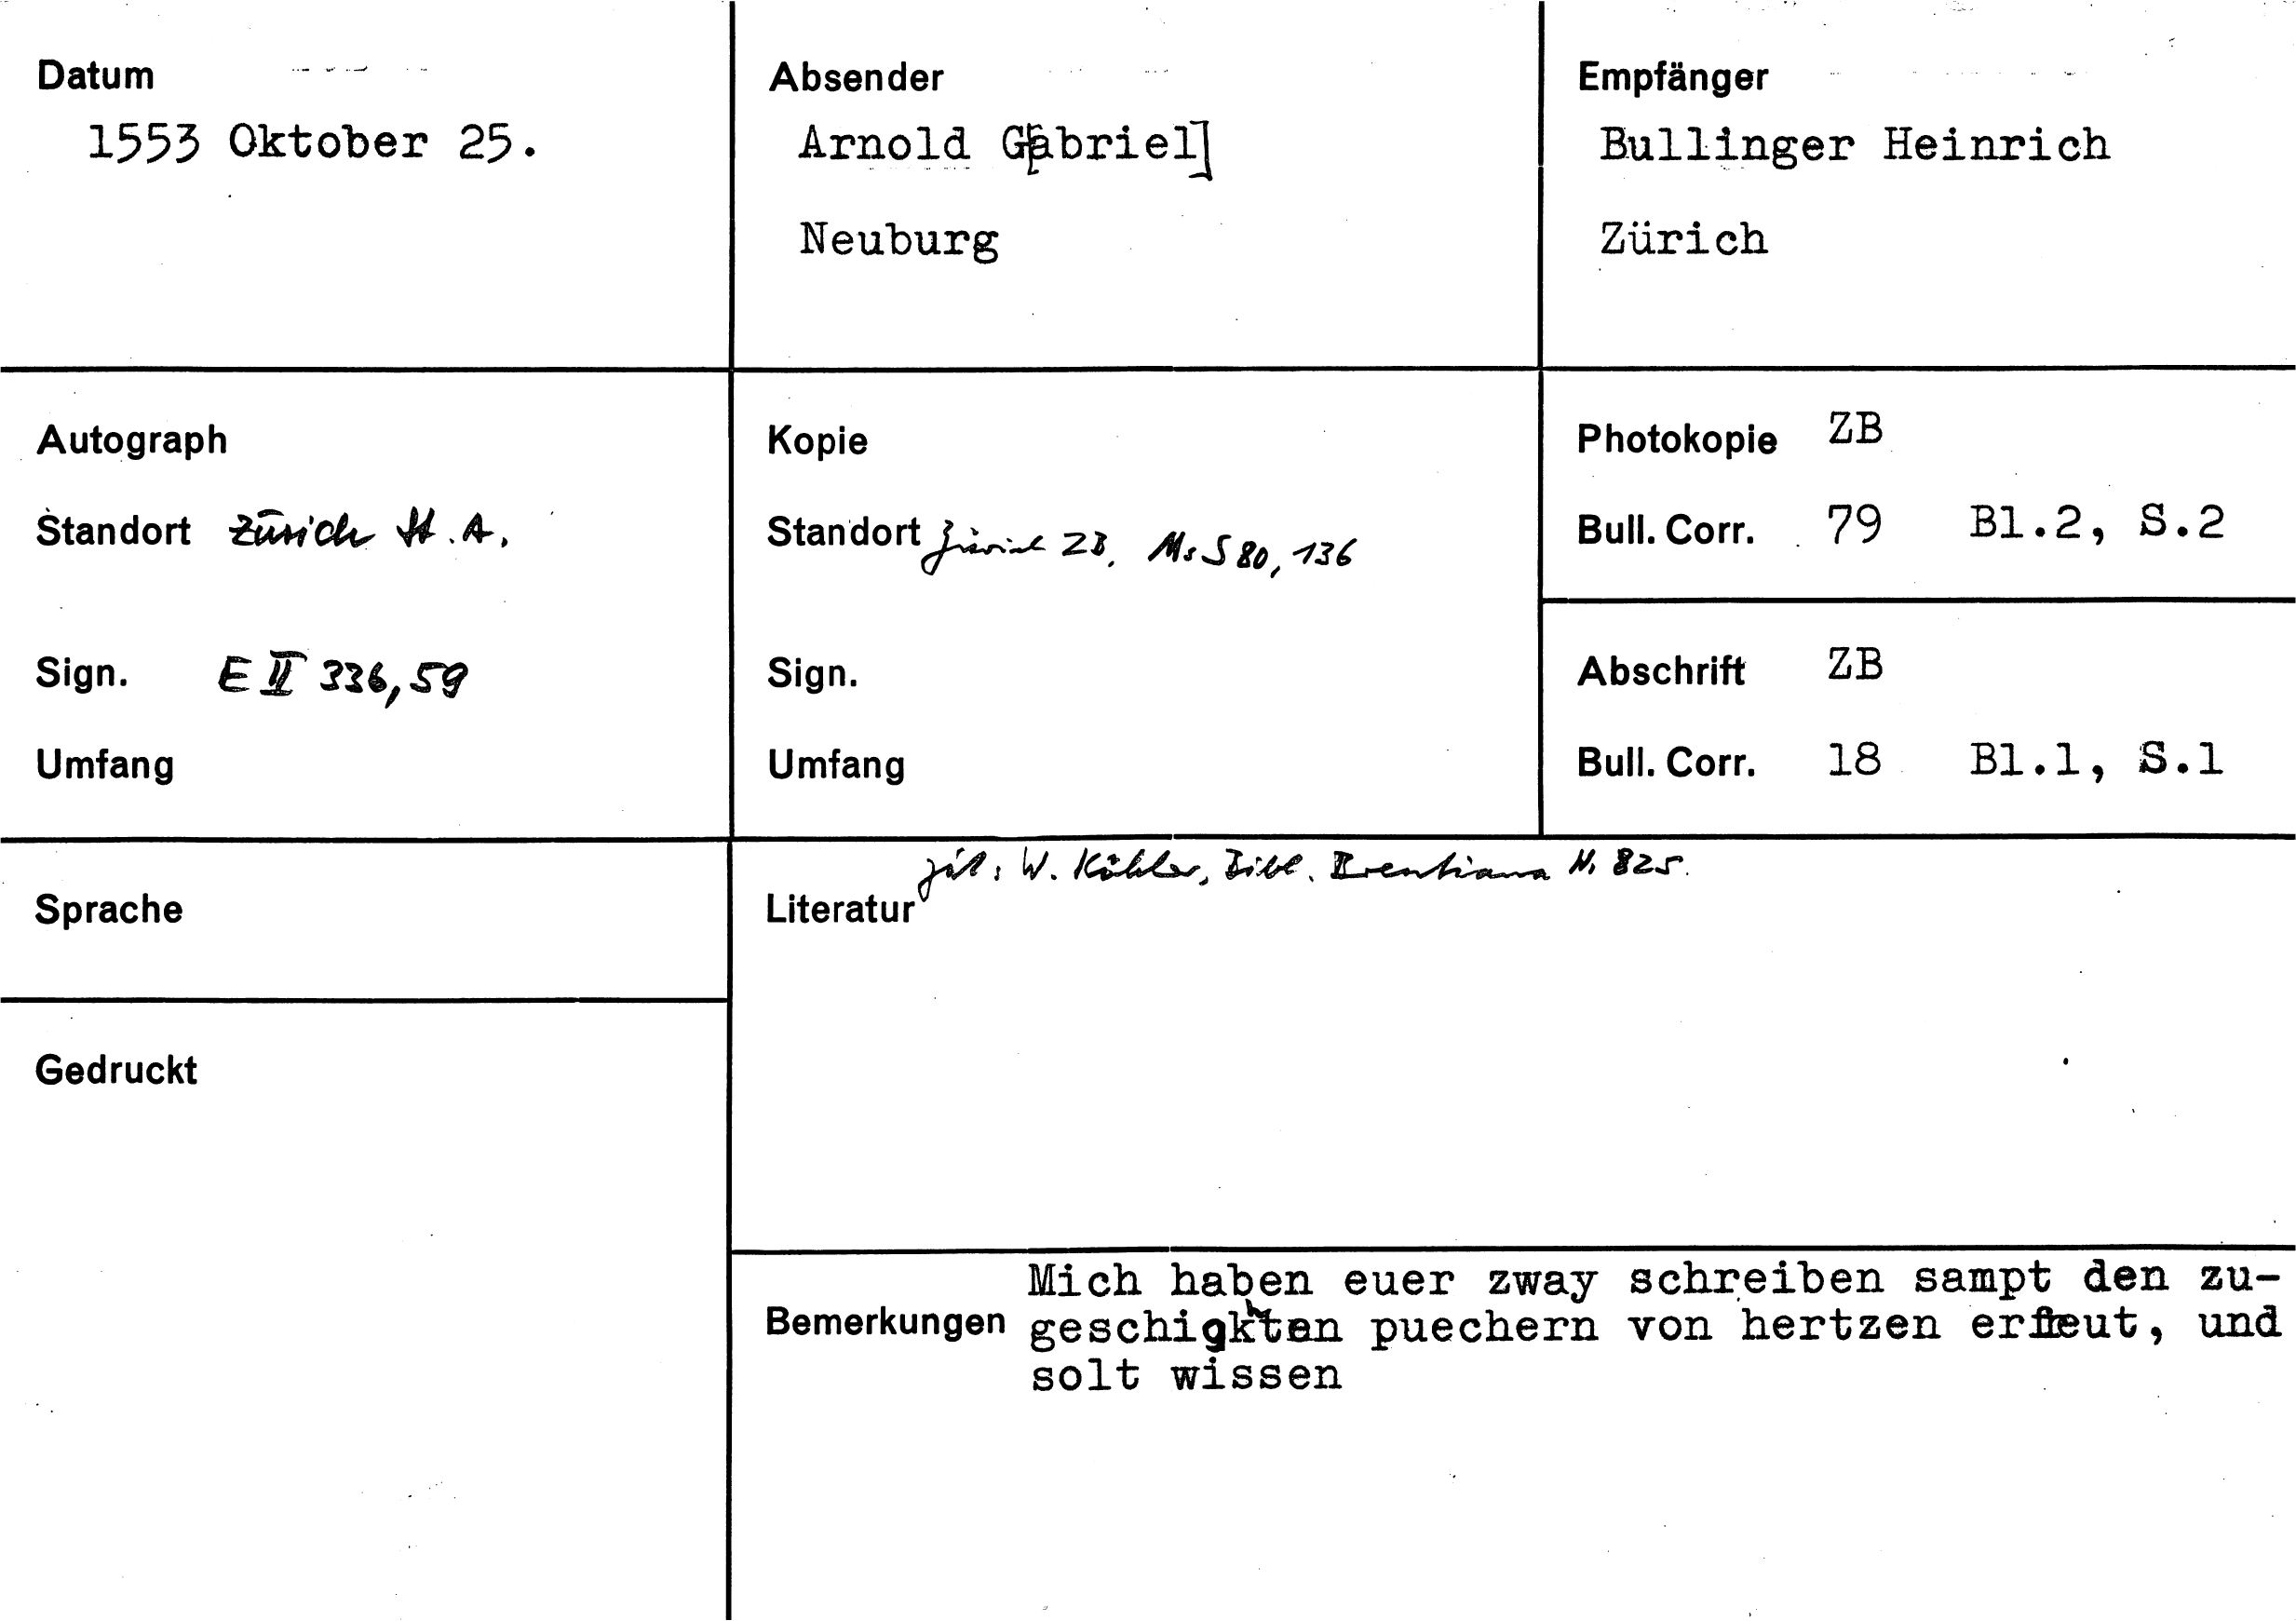 Datum
1553 Oktober 25.
Absender
Arnold G[abriel]
Neuburg
Empfänger
Bullinger Heinrich
Zürich
Autograph
Standort Zürich St.A.
Sign. E II 336,59
Umfang
Kopie
Standort Zürich ZB, Ms S 80, 136
Sign.
Umfang
Photokopie ZB
Bull. Corr. 79 Bl.2, S.2
Abschrift ZB
Bull. Corr. 18 Bl.1, S.1
Sprache
Gedruckt
zit: W. Köhler, Bibl. Brentiana N. 825.
Literatur
Mich haben euer zway schreiben sampt den zu-
Bemerkungen geschigkten puechern von hertzen erfreut, und
solt wissen